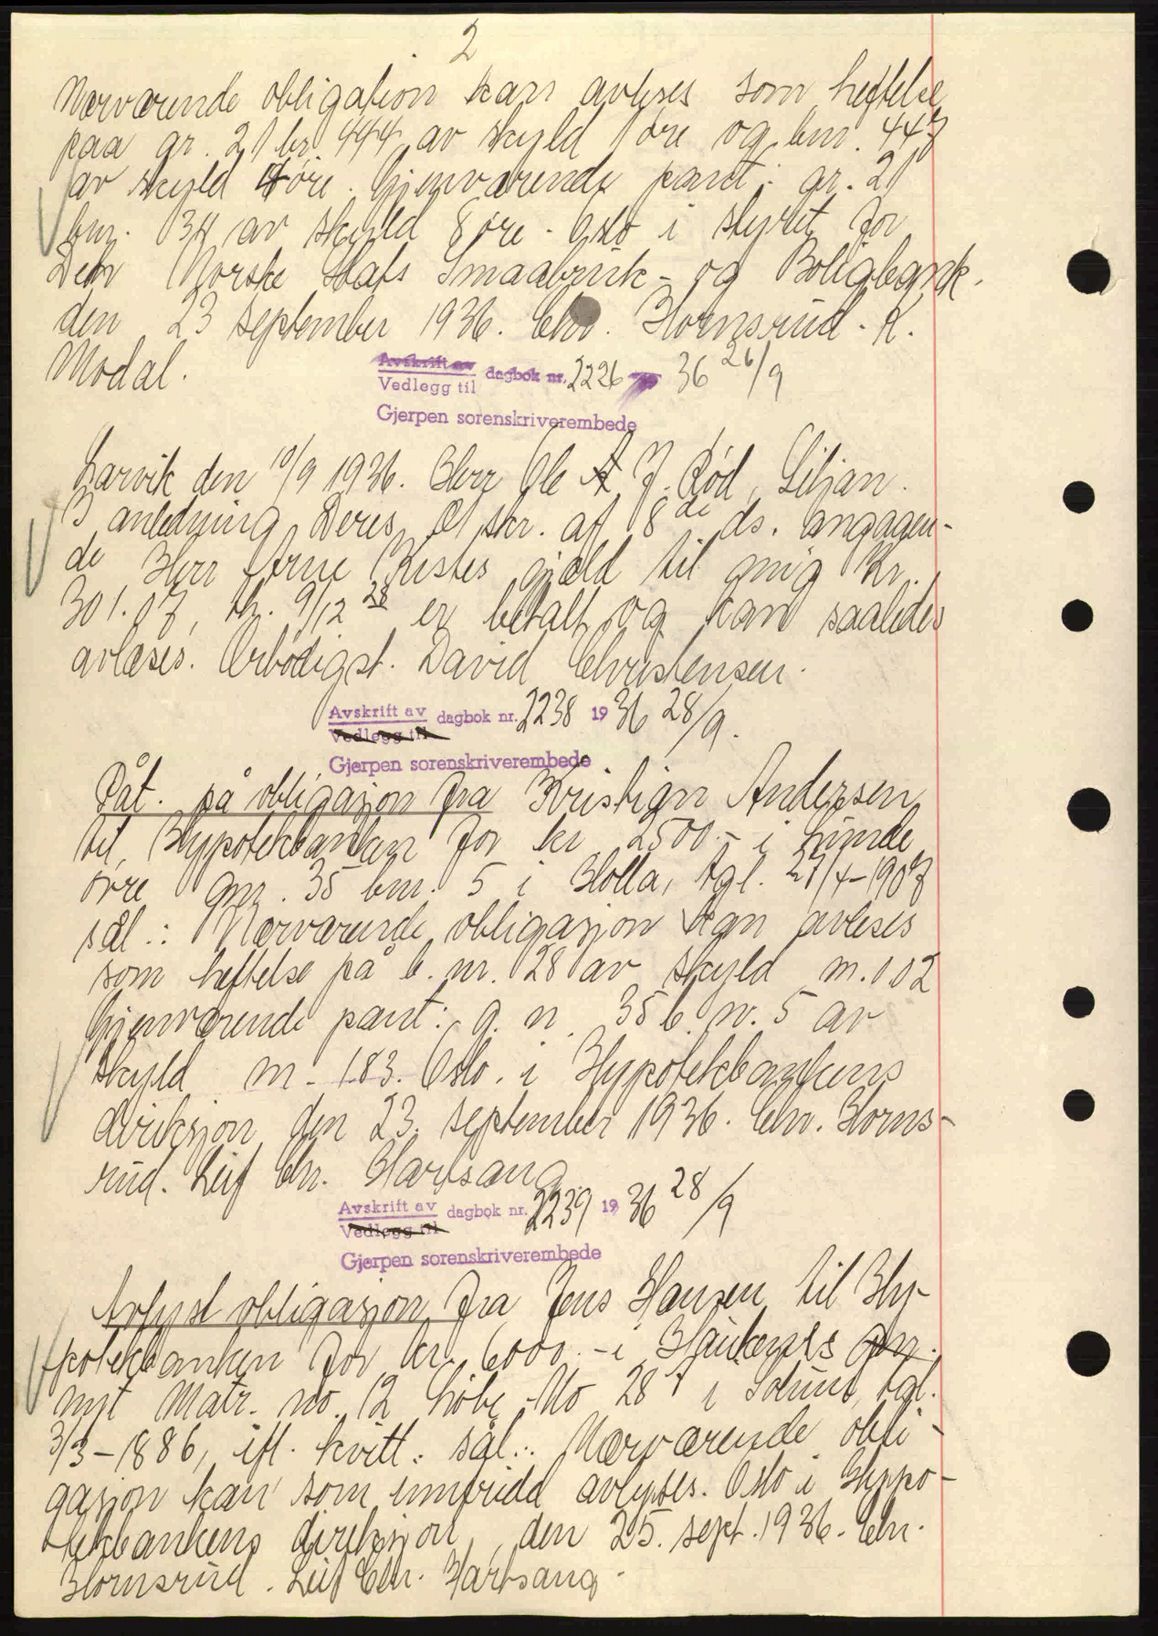 2
Nærværende obligation kan avleses som heftelse
paa gr. 21 br. 444 av skyld 1 øre og bnr. 447
av skyld 4 øre. Gjenværende pant: gr. 21
bnr. 34 av skyld 8 øre. Oslo i styret for
Den Norske Stats Smaabruk- og Boligbank.
den 23 september 1936. Chr. Hornsrud. K.
Modal.
Avskrift av
Vedlegg til dagbok nr. 2226 36 26/9
Gjerpen sorenskriverembede
Larvik den 10/9 1936. Herr Ole A J. Rød, Siljan.
I anledning Deres skr. af 8de ds. angaaen-
de Herr Arne gjæld til mig Kr.
301.07, th. 9/12 28 er betalt og kan saaledes
avlæses. Ærbødigst. David Christensen.
Avskrift av
Vedlegg til dagbok nr. 2238 1936 28/9.
Gjerpen sorenskriverembede
Påt. på obligasjon fra Kristian Andersen
til Hypotekbanken for kr 2500.- i Lunde
øvre gnr. 35 bnr. 5 i Holla, tgl. 27/4-1907
sål.: Nærværende obligasjon kan avleses
som heftelse på b. nr. 28 av skyld m. 0 02
Gjenværende pant: g. n. 35 b. nr. 5 av
skyld m. 1.83. Oslo. i Hypotekbankens
direksjon den 23. september 1936. Chr. Horns-
rud. Leif Chr. Hartsang.
Avskrift av
Vedlegg til dagbok nr. 2239 1936 28/9
Gjerpen sorenskriverembede
Avlyst obligasjon fra Jens Hansen til Hy-
potekbanken for kr. 6000.- i gnr.
nyt Matr. no. 12 Løbe No 28 i Solum, tgl.
3/3-1886, ifl. kvitt. sål.: Nærværende obli-
gasjon kan som innfridd avlyses. Oslo i Hypo-
tekbankens direksjon, den 25. sept. 1936. Chr.
Hornsrud. Leif Chr. Hartsang.